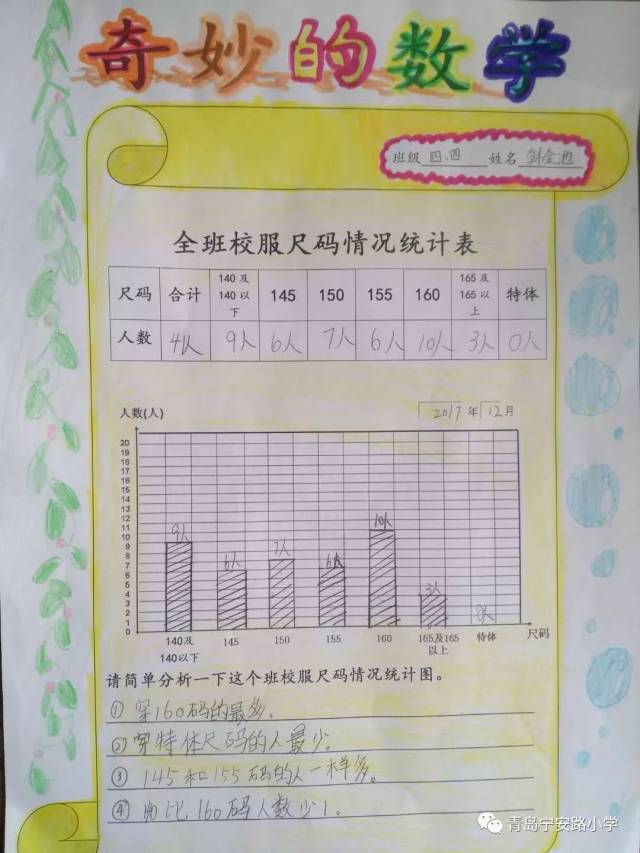 奇妙的数学
班级 四、四 姓名
全班校服尺码情况统计表
尺码 合计 140及140以下 145 150 155 160 165及165以上 特体
人数 41人 9人 6人 7人 6人 10人 3人 0人
人数(人)
2017年12月
20
19
18
17
16
15
14
13
12
11
10
9
8
7
6
5
4
3
2
1
0
9人 6人 7人 6人 10人 3人 0人
140及140以下 145 150 155 160 165及165以上 特体 尺码
请简单分析一下这个班校服尺码情况统计图。
① 穿160码的最多。
② 穿特体尺码的人最少。
③ 145和155码的人一样多。
④ 比160码人数少1。
青岛宁安路小学